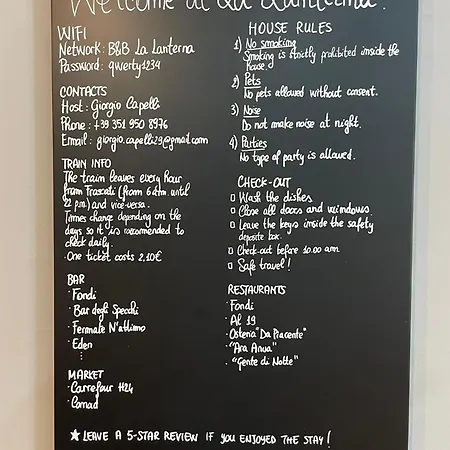 Welcome at La Lanterna!
WIFI
Network: B&B La Lanterna
Password: qwerty1234
CONTACTS
Host: Giorgio Capelli
Phone: +39 351 950 8976
Email: giorgio.capelli29@gmail.com
TRAIN INFO
The train leaves every hour
from Frascati (from 6 am until
22 p.m) and vice-versa.
Times change depending on the
days so it is recomended to
check daily.
· One ticket costs 2,10€
BAR
· Fondi
· Bar degli Specchi
· Fermate N'attimo
· Eden
⋮
MARKET
· Carrefour H24
· Conad
HOUSE RULES
1) No smoking
Smoking is strictly prohibited inside the
house.
2) Pets
No pets allowed without consent.
3) Noise
Do not make noise at night.
4) Parties
No type of party is allowed.
CHECK-OUT
□ Wash the dishes
□ Close all doors and windows
□ Leave the keys inside the safety
deposite box.
□ Check-out before 10.00 am
□ Safe travel!
RESTAURANTS
· Fondi
· Al 19
· Osteria "Da Piacente"
· "Ara Anua"
· "Gente di Notte"
★ LEAVE A 5-STAR REVIEW IF YOU ENJOYED THE STAY!